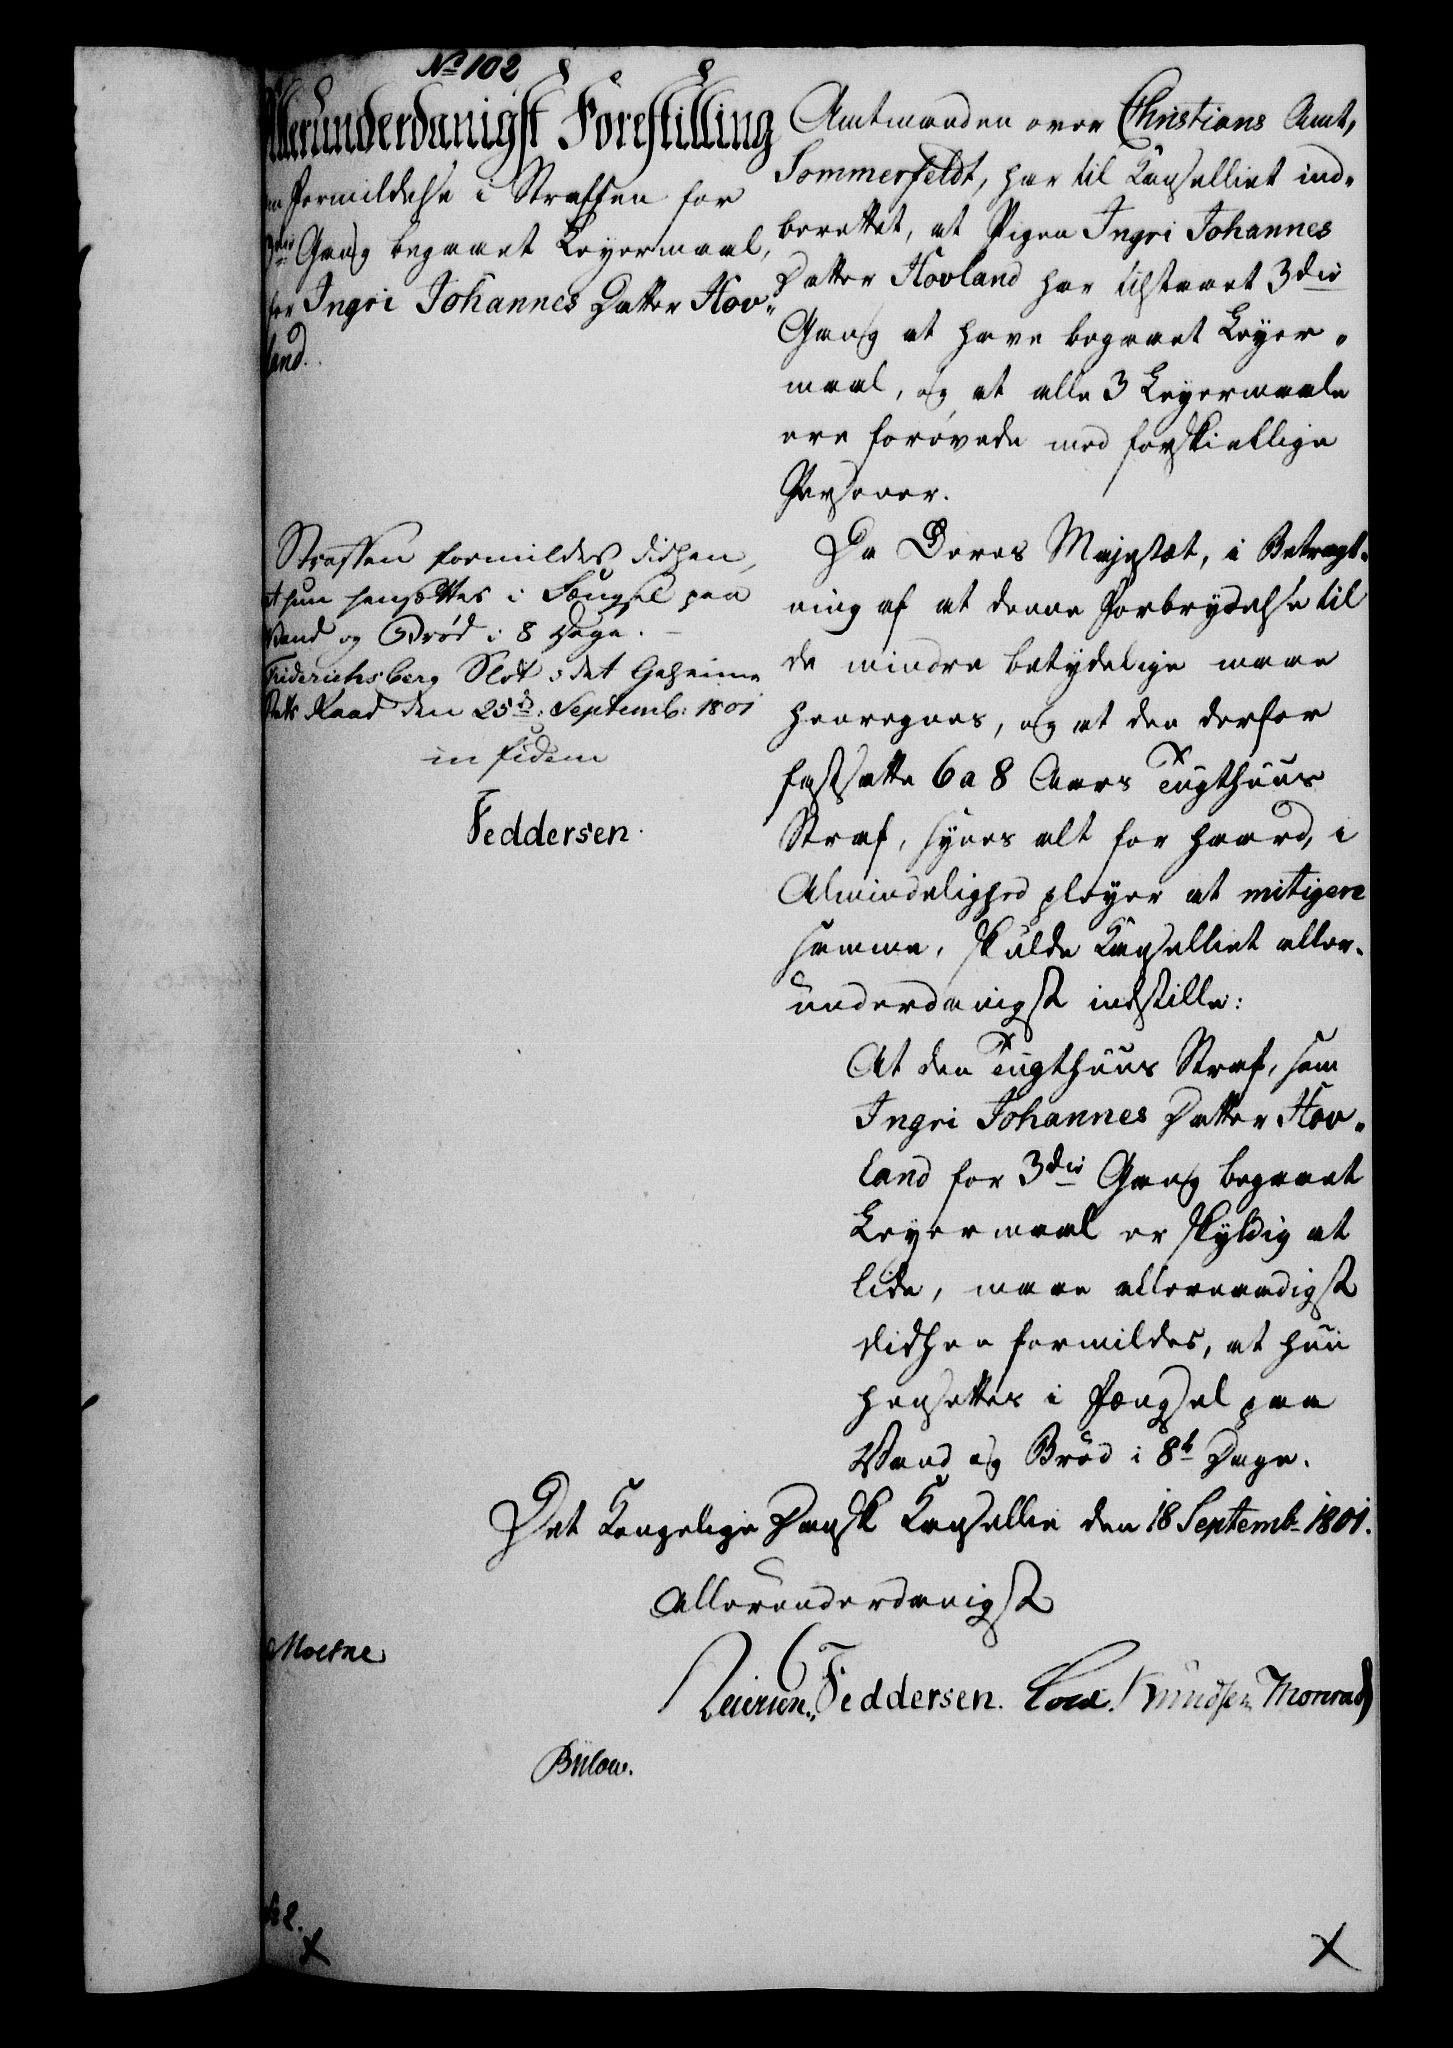 No 102
Allerunderdanigst Forestilling
om Formildelse i Straffen for
3die Gang begaaet Leyermaal,
for Ingri Johannes Datter Hov-
land.
Straffen formildes didhen,
at hun hensættes i Fængsel paa
Vand og Brød i 8 Dage.
Friderichsberg Slot i det Geheime
Stats Raad den 25d: Septemb: 1801
in fidem
Feddersen.
Amtmanden over Christians Amt,
Sommerfeldt, har til Kanselliet ind-
berettet, at Pigen Ingri Johannes
Datter Hovland har tilstaaet 3die
Gang at have begaaet Leyer-
maal, og at alle 3 Leyermaale
ere forøvede med forskiellige
Personer.
Da Deres Majestæt, i Betragt-
ning af at denne Forbrydelse til
de mindre betydelige maae
henregnes, og at den derfor
fastsatte 6 a 8 Aars Tugthuus
Straf, synes alt for haard, i
Almindelighed pleyer at mitigere
samme, skulde Kanselliet aller-
underdanigst indstille:
At den Tugthuus Straf, som
Ingri Johannes Datter Hov-
land for 3die Gang begaaet
Leyermaal er skyldig at
lide, maae allernaadigst
didhen formildes, at hun
hensættes i Fængsel paa
Vand og Brød i 8t Dage.
Det Kongelige Dansk Kansellie den 18 Septemb. 1801.
Allerunderdanigst
Feddersen. Cold. Knudsen Monrad
Moesne
Bülow.